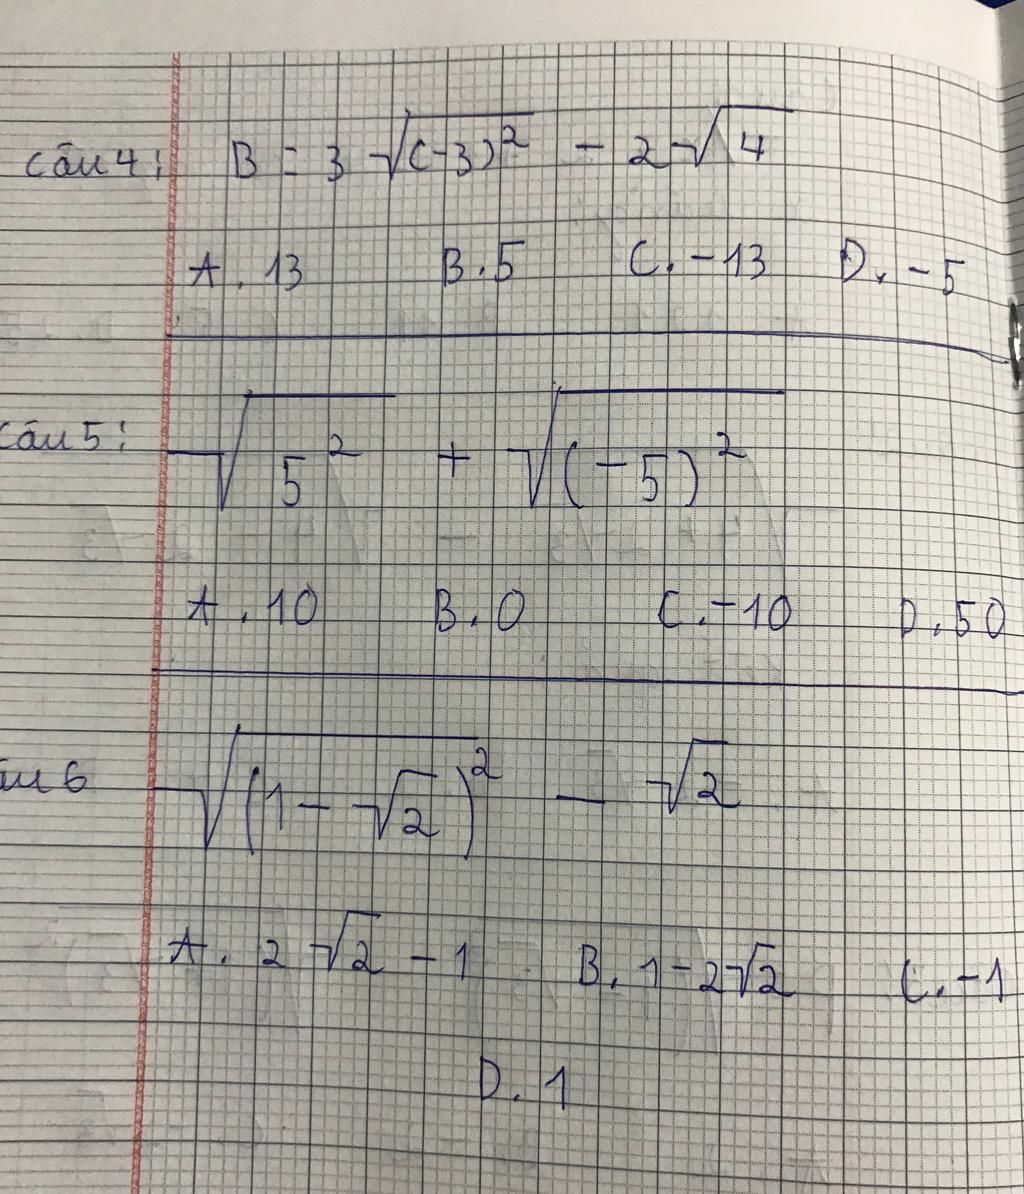 Câu 4: B = 3 √(-3)² - 2√4
A. 13 B. 5 C. -13 D. -5
Câu 5: √5² + √(-5)²
A. 10 B. 0 C. -10 D. 50
âu 6 √(1 - √2)² - √2
A. 2√2 - 1 B. 1 - 2√2 C. -1
D. 1